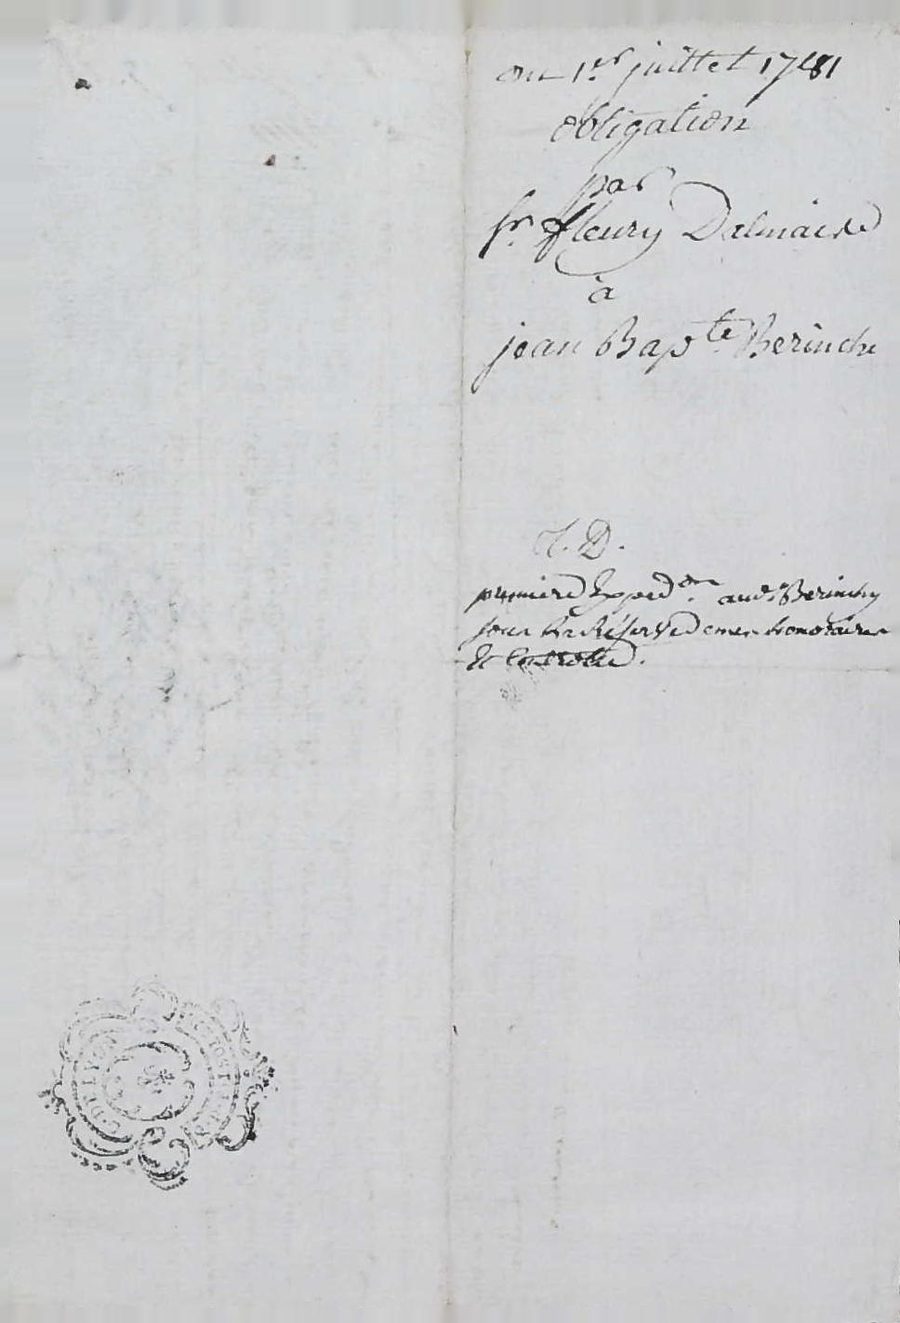 du 1er juillet 1781
obligation
par
sr. fleury Dalmaise
à
jean Bapte. Berinche
D.
premiere Exped.on aud. Berinche
sous la Réserve de mes honoraires
& Controlle.